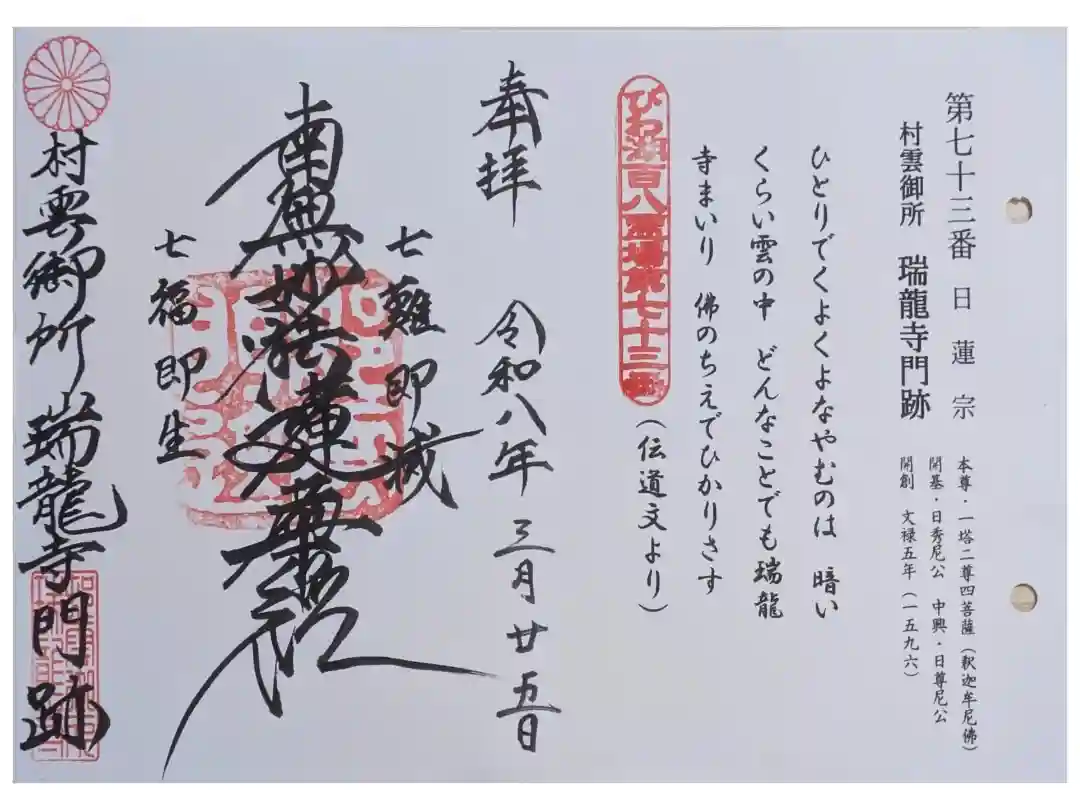 第七十三番 日蓮宗
村雲御所 瑞龍寺門跡
本尊・一塔二尊四菩薩（釈迦牟尼佛）
開基・日秀尼公 中興・日尊尼公
開創 文禄五年（一五九六）
ひとりでくよくよなやむのは 暗い
くらい雲の中 どんなことでも瑞龍
寺まいり 佛のちえでひかりさす
（伝道文より）
びわ湖百八霊場第七十三番
奉拝 令和八年三月廿五日
七難即滅
南無妙法蓮華経
七福即生
村雲御所瑞龍寺門跡